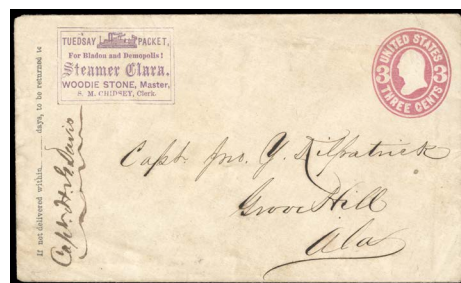 TUEDSAY PACKET,
For Bladon and Demopolis!
Steamer Clara.
WOODIE STONE, Master,
S. M. CHIDSEY, Clerk.
UNITED STATES
3 3
THREE CENTS
If not delivered within days, to be returned to
Capt. H. G. Davis
Capt. Jno. Y. Kilpatrick
Grove Hill
Ala